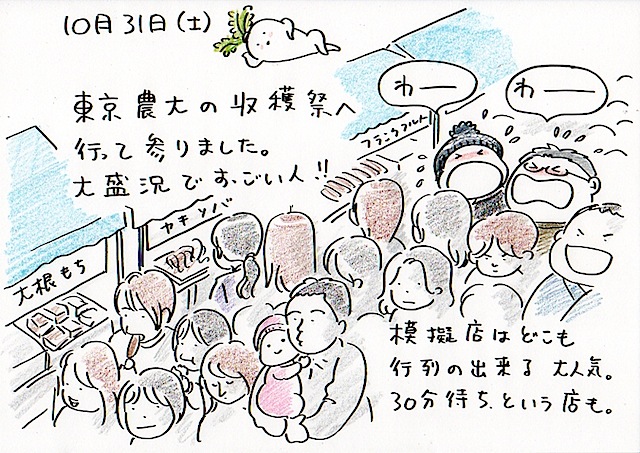 10月31日(土)
東京農大の収穫祭へ
行って参りました。
大盛況ですっごい人!!
わー
わー
フランクフルト
ヤキソバ
大根もち
模擬店はどこも
行列の出来る大人気。
30分待ちという店も。